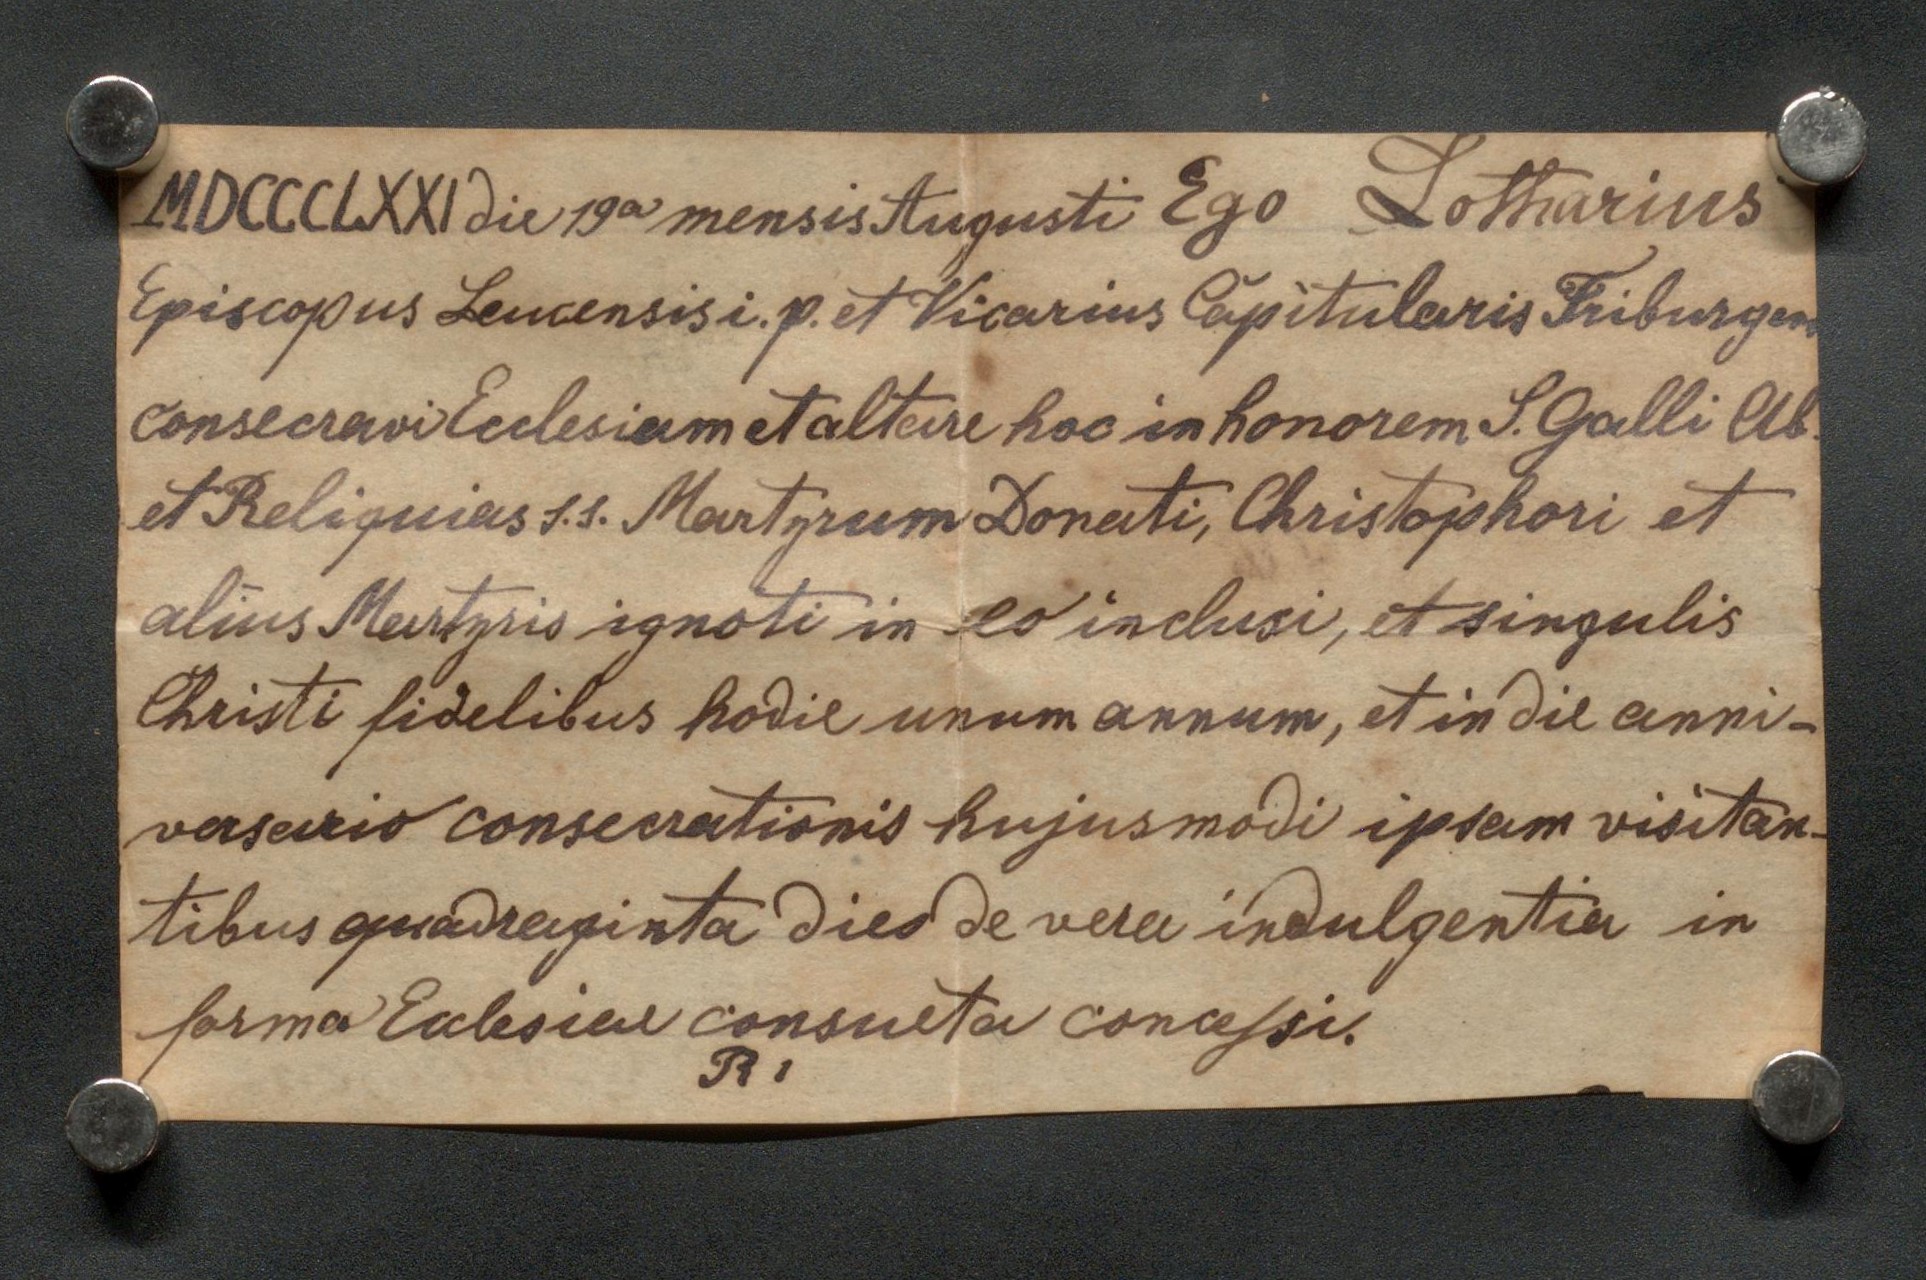 MDCCCLXXI die 19a mensis Augusti Ego Lotharius
Episcopus Leucensis i. p. et Vicarius Capitularis Friburgen
consecravi Ecclesiam et altare hoc in honorem S. Galli Ab.
et Reliquias s.s. Martyrum Donati, Christophori et
alius Martyris ignoti in eo inclusi, et singulis
Christi fidelibus hodie unum annum, et in die anni-
versario consecrationis hujusmodi ipsam visitan-
tibus quadraginta dies de vera indulgentia in
forma Ecclesiae consueta concessi.
R 1